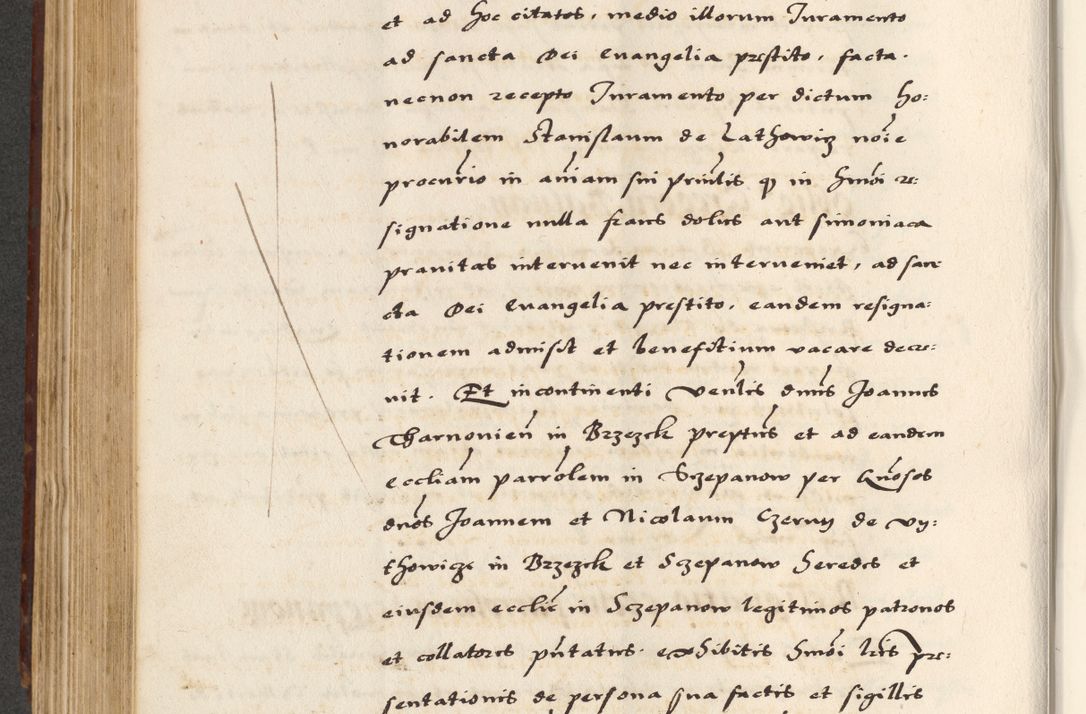 et ad hoc citatos, medio illorum Juramento
ad sancta Dei Evangelia prestito, facta.
necnon recepto Juramento per dictum ho:
norabilem Stanislaum de Lathowicz noïe
procurïo in anïam sui prinïtis q in hmõi re:
signatione nulla fraus dolus aut simoniaca
pravitas intervenit nec interveniet, ad san:
cta Dei Evangelia prestito, eandem resigna:
tionem admisit et benefitium vacare decre:
vit. Et incontinenti Venïlis dnus Joannes
Tharnovien in Brzezek preptus et ad eandem
eccliam parrolem in Sczepanow per Gnosos
dnos Joannem et Nicolaum Czerny de Vy:
thowicze in Brzezek et Sczepanow heredes et
eiusdem ecclie in Sczepanow legitimos patronos
et collatores pntatus. exhibitis hmõi lris pre:
sentationis de persona sua factis et sigillis